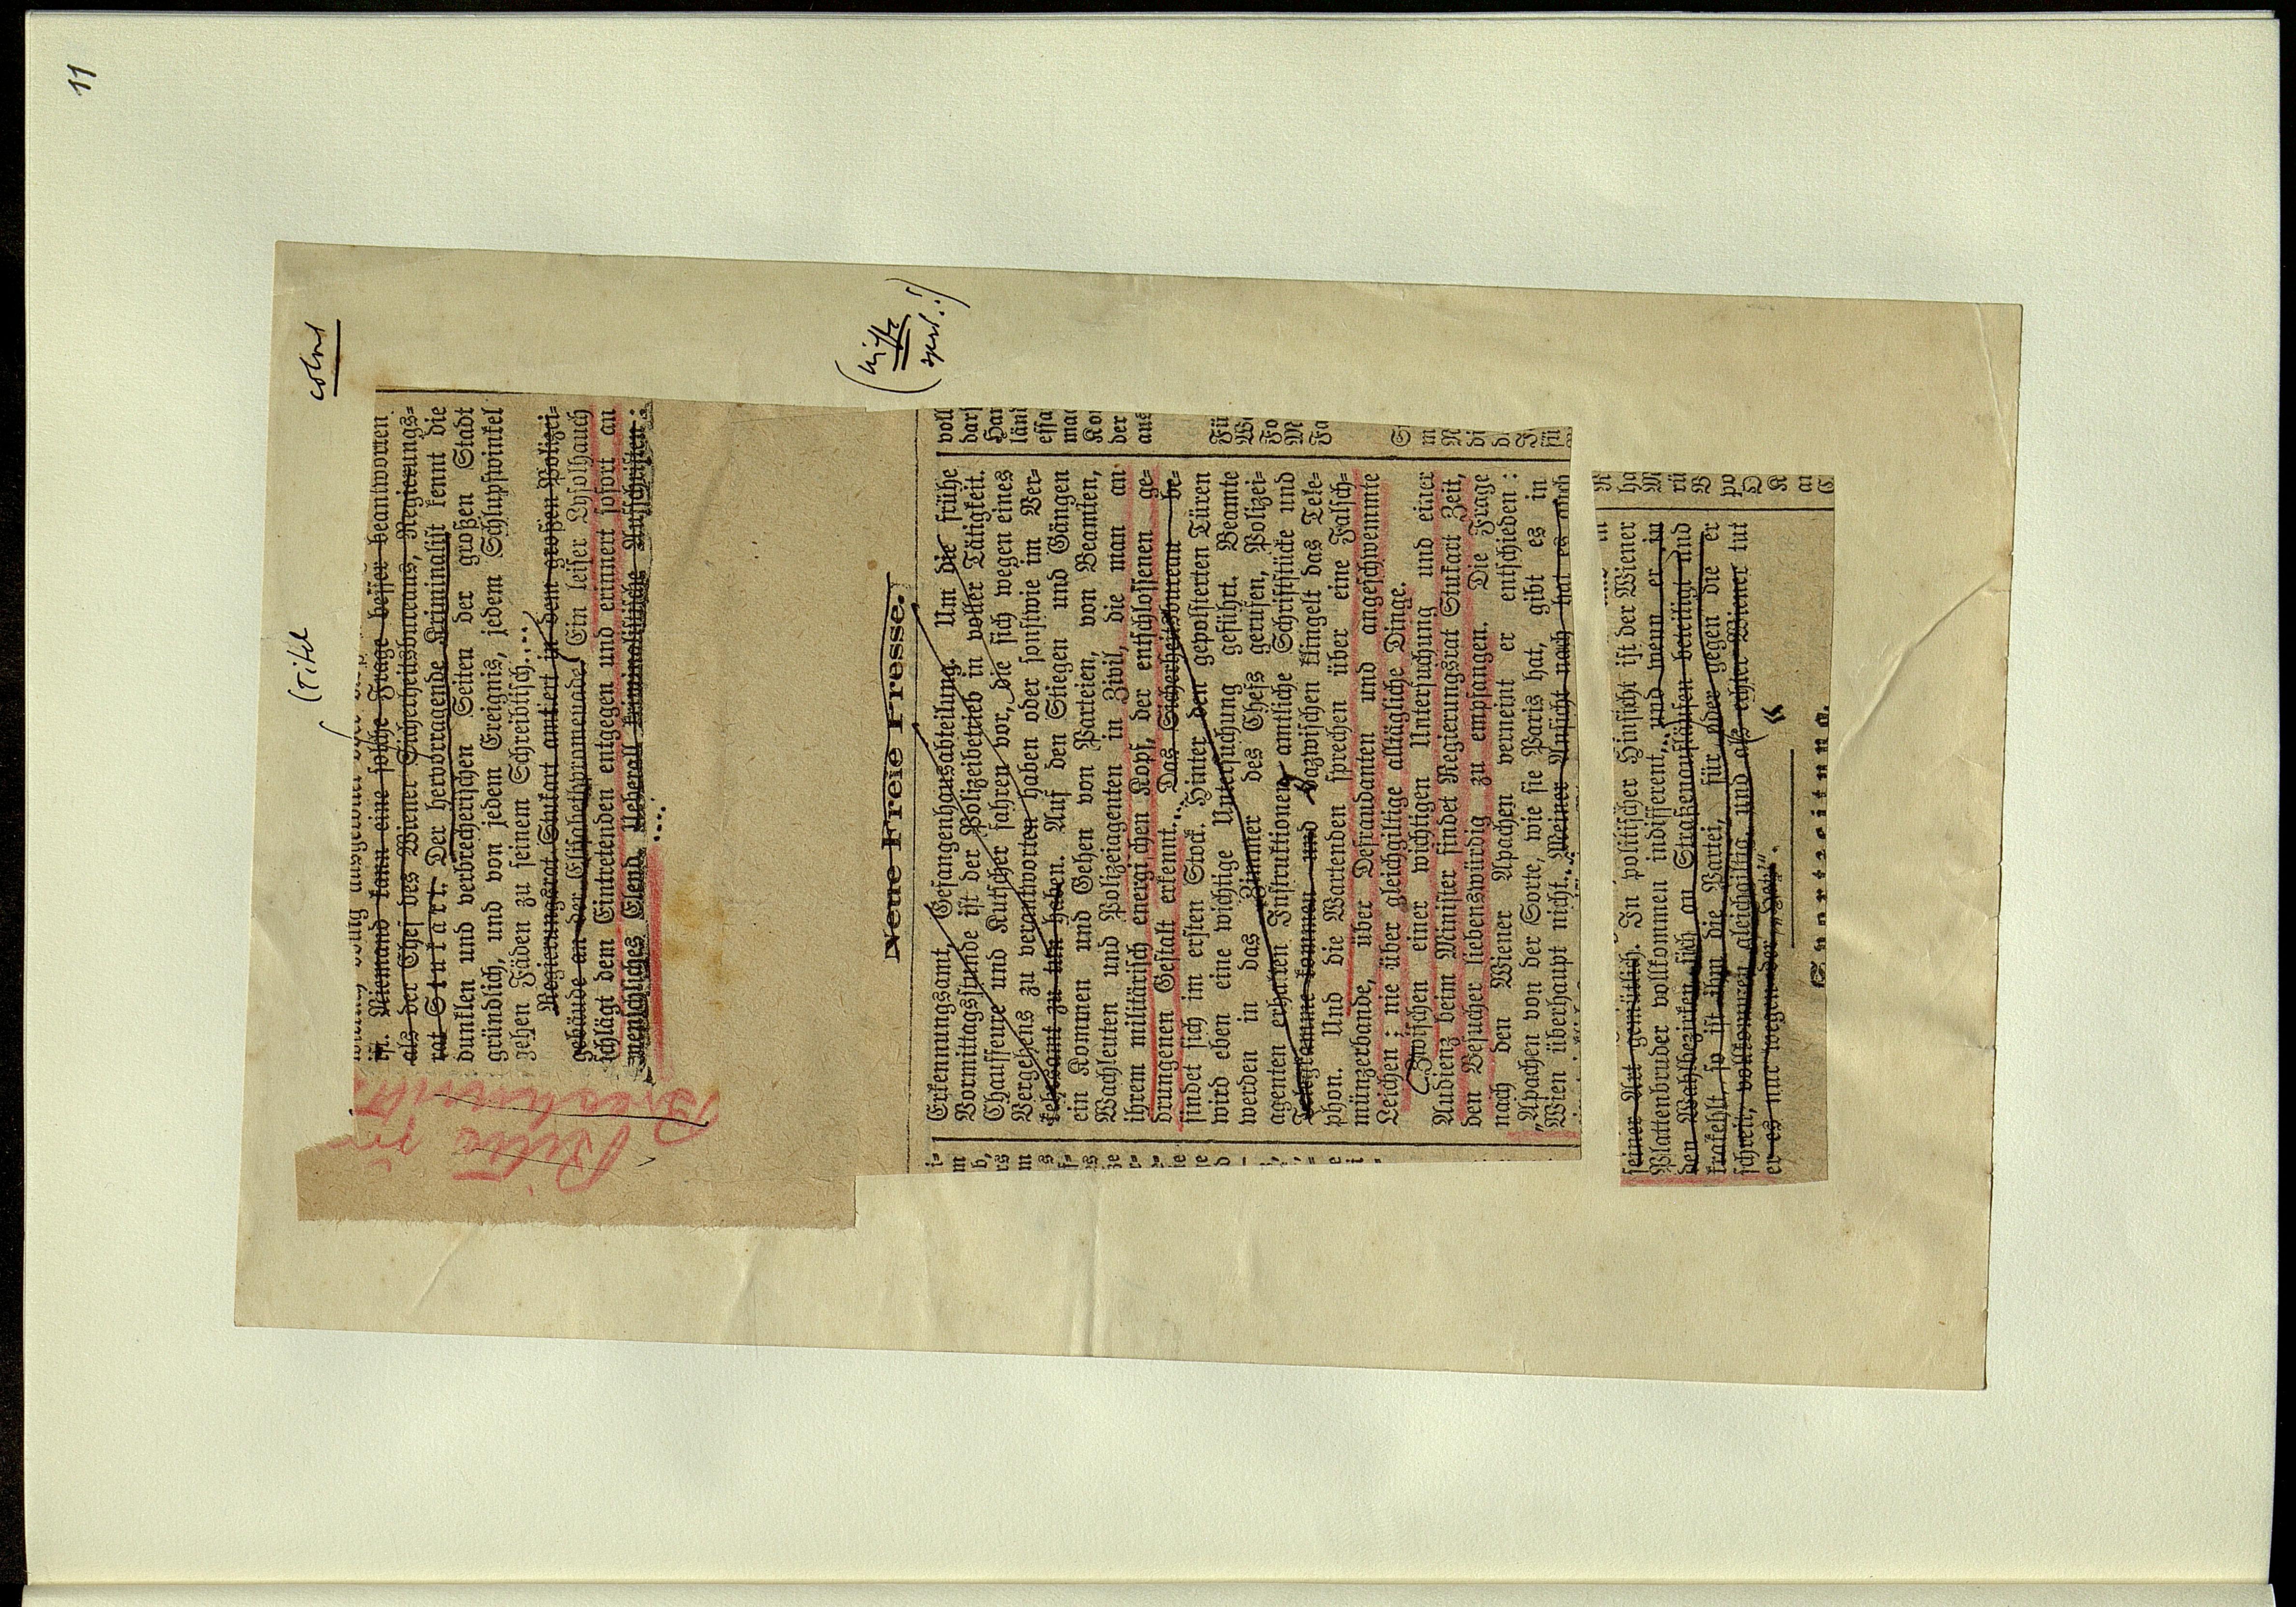 11
(Titel
ist. Niemand kann eine solche Frage besser beantworten
als der Chef des Wiener Sicherheitsbureaus, Regierungs-
rat Stukart. Der hervorragende Kriminalist kennt die
dunklen und verbrecherischen Seiten der großen Stadt
gründlich, und von jedem Ereignis, jedem Schlupfwinkel
gehen Fäden zu seinem Schreibtisch....
Regierungsrat Stukart amtiert in dem großen Polizei-
gebäude an der Elisabethpromenade. Ein leiser Lysolhauch
schlägt dem Eintretenden entgegen und erinnert sofort an
menschliches Elend. Ueberall kriminalistische Aufschriften:
....
Bitte für
Neue Freie Presse.
Erkennungsamt, Gefangenhausabteilung. Um die frühe
Vormittagsstunde ist der Polizeibetrieb in voller Tätigkeit.
Chauffeure und Kutscher fahren vor, die sich wegen eines
Vergehens zu verantworten haben oder sonstwie im Ver-
kehrsamt zu tun haben. Auf den Stiegen und Gängen
ein Kommen und Gehen von Parteien, von Beamten,
Wachleuten und Polizeiagenten in Zivil, die man an
ihrem militärisch energischen Kopf, der entschlossenen ge-
drungenen Gestalt erkennt... Das Sicherheitsbureau be-
findet sich im ersten Stock. Hinter den gepolsterten Türen
wird eben eine wichtige Untersuchung geführt. Beamte
werden in das Zimmer des Chefs gerufen, Polizei-
agenten erhalten Instruktionen, amtliche Schriftstücke und
Telegramme kommen und dazwischen klingelt das Tele-
phon. Und die Wartenden sprechen über eine Falsch-
münzerbande, über Defraudanten und angeschwemmte
Leichen; nie über gleichgiltige alltägliche Dinge.
Zwischen einer wichtigen Untersuchung und einer
Audienz beim Minister findet Regierungsrat Stukart Zeit,
den Besucher liebenswürdig zu empfangen. Die Frage
nach den Wiener Apachen verneint er entschieden:
„Apachen von der Sorte, wie sie Paris hat, gibt es in
Wien überhaupt nicht... Meiner Ansicht nach hat es auch
seiner Art gemütlich. In politischer Hinsicht ist der Wiener
Plattenbruder vollkommen indifferent... und wenn er in
den Wahlbezirken sich an Straßenaufläufen beteiligt und
krakehlt, so ist ihm die Partei, für oder gegen die er
schreit, vollkommen gleichgiltig, und als echter Wiener tut
er es nur wegen der „Hetz“.
«
Sportzeitung.